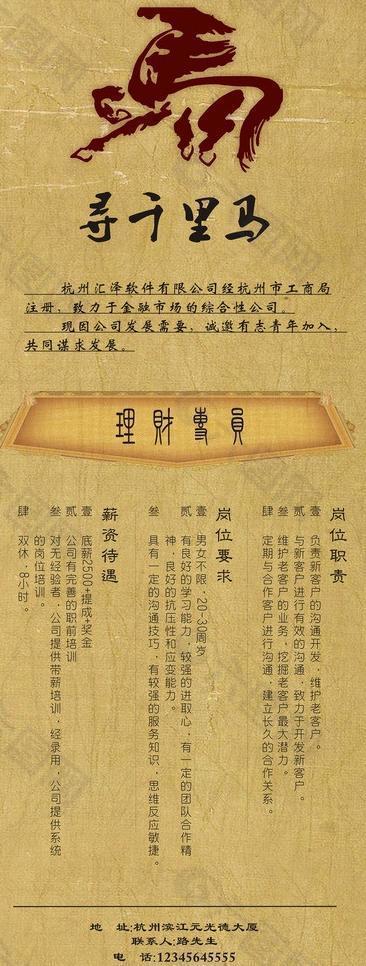 寻千里马
杭州汇泽软件有限公司经杭州市工商局
注册，致力于金融市场的综合性公司。
现因公司发展需要，诚邀有志青年加入，
共同谋求发展。
理财专员
岗位职责
壹 负责新客户的沟通开发，维护老客户。
贰 与新客户进行有效的沟通，致力于开发新客户。
叁 维护老客户的业务，挖掘老客户最大潜力。
肆 定期与合作客户进行沟通，建立长久的合作关系。
岗位要求
壹 男女不限，20-30周岁
贰 有良好的学习能力，较强的进取心，有一定的团队合作精
神，良好的抗压性和应变能力。
叁 具有一定的沟通技巧，有较强的服务知识，思维反应敏捷。
薪资待遇
壹 底薪2500+提成+奖金
贰 公司有完善的职前培训
叁 对无经验者，公司提供带薪培训，经录用，公司提供系统
的岗位培训。
肆 双休，8小时。
地 址:杭州滨江元光德大厦
联系人:路先生
电 话:12345645555